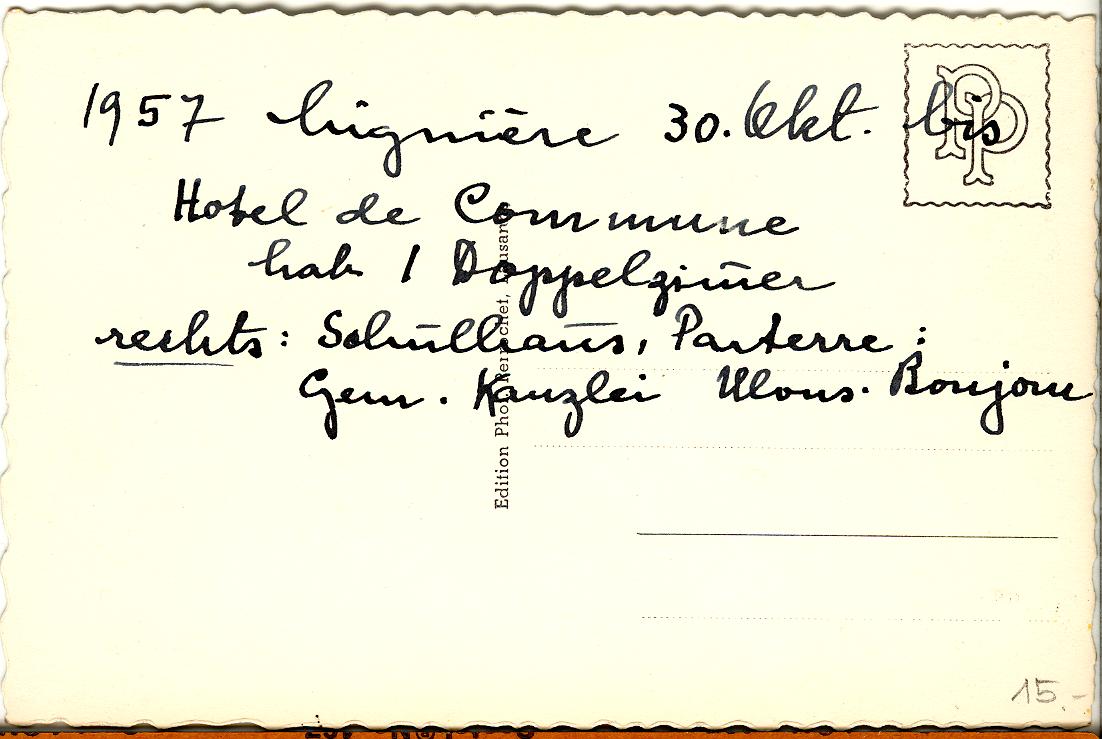 1957 Lignière 30. Okt. bis
Hotel de Commune
hab 1 Doppelzim̄er
rechts: Schulhaus, Parterre:
Gem. Kanzlei Mons. Bonjour
Edition Photo Perrochet, Lausanne
PP
15.-